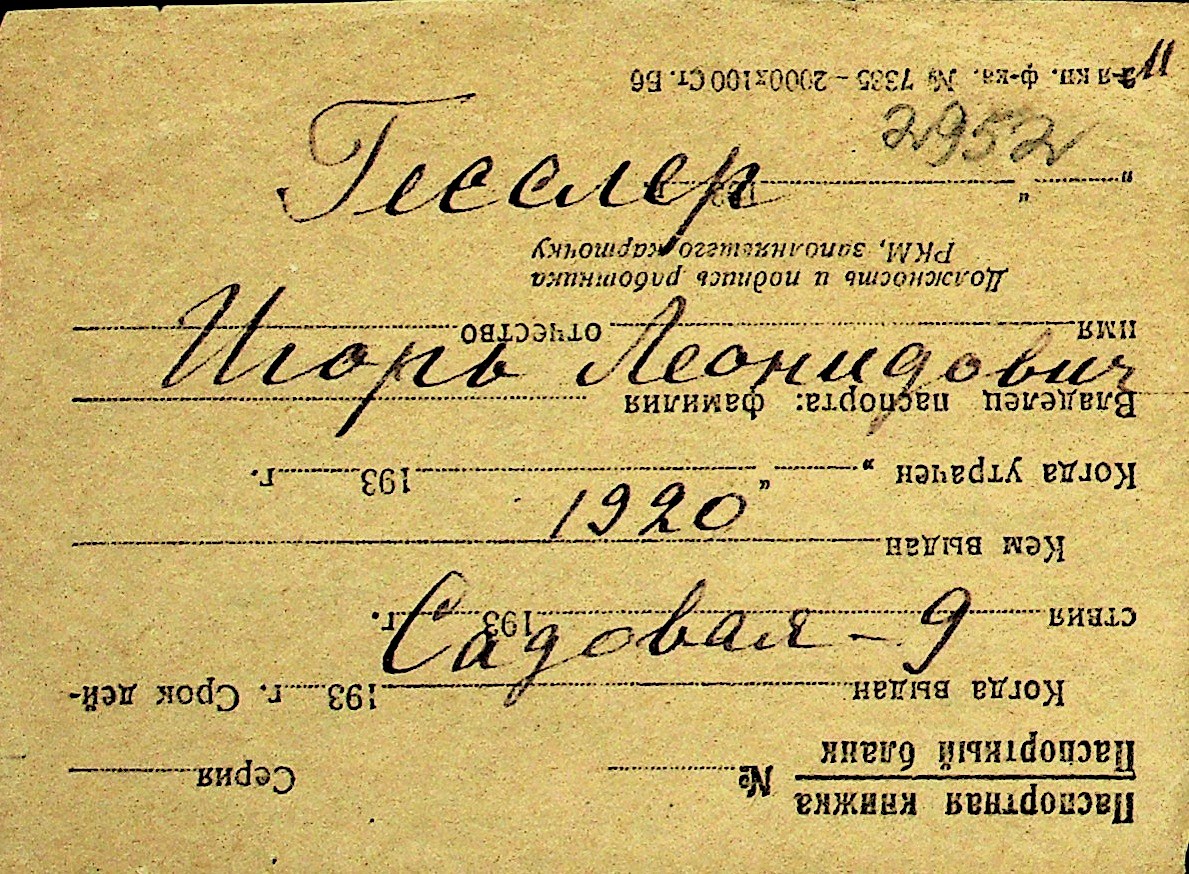 Гесслер
Игорь Леонидович
1920
Садовая – 9
2952
11
Паспортная книжка
Паспортный бланк
№ Серия
Когда выдан 193 г. Срок дей-
ствия 193 г.
Кем выдан
Когда утрачен „ “ 193 г.
Владелец паспорта: фамилия
имя отчество
Должность и подпись работника
РКМ, заполнявшего карточку
„ “ 193 г.
3-я кн. ф-ка. № 7335 – 2000х100 Ст. Б6